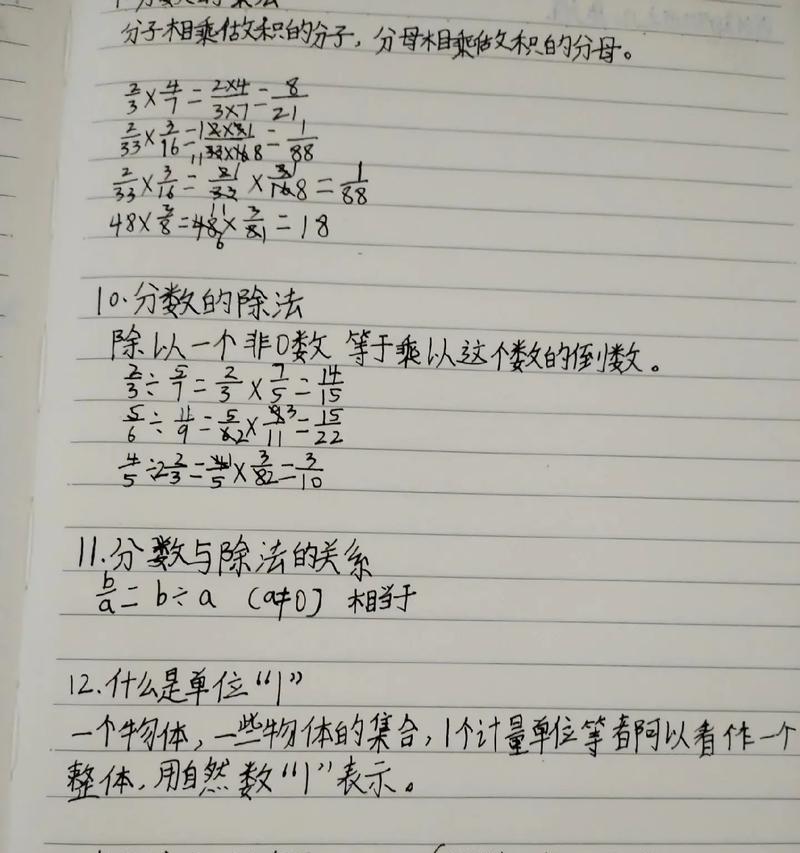 分数的乘法
分子相乘做积的分子，分母相乘做积的分母。
2/3×4/7=2×4/3×7=8/21
2/33×3/16=2×3/33×16=1/88
2/33×3/16=2/33×3/16=1/88
48×3/8=48×3/8=18
10.分数的除法
除以一个非0数 等于乘以这个数的倒数。
2/3÷5/7=2/3×7/5=14/15
5/6÷11/9=5/6×9/11=15/22
4/5÷2 2/3=4/5×3/8=3/10
11.分数与除法的关系
b/a=b÷a (a≠0) 相当于
12.什么是单位“1”
一个物体，一些物体的集合，1个计量单位等都可以看作一个
整体，用自然数“1”表示。